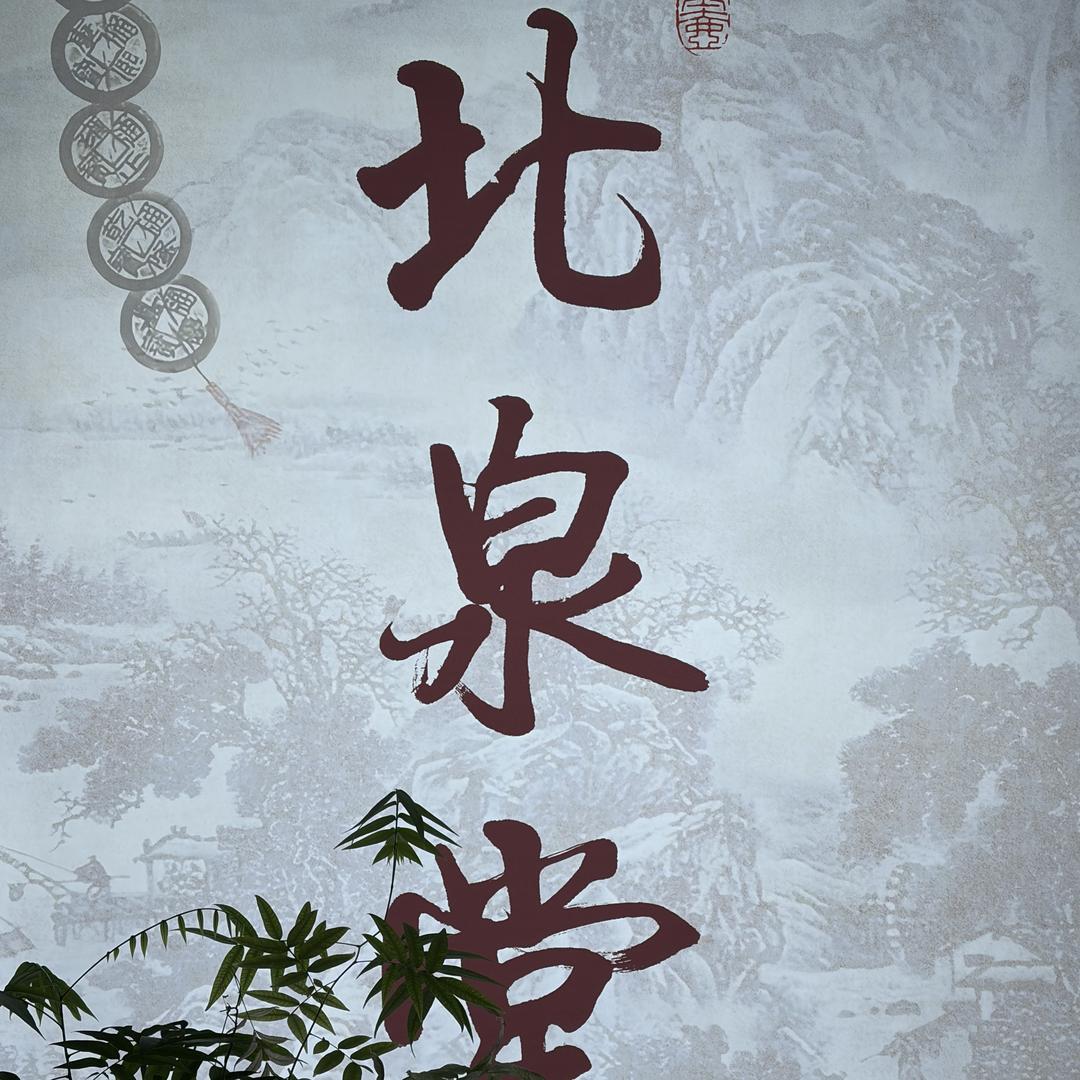 北
泉
堂